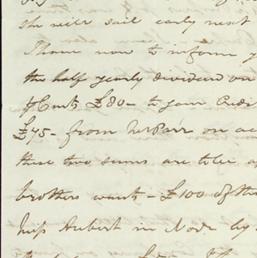 she will sail early next
I have now to inform y
the half yearly dividend on
£80 - to your Credi
£45 - from Mr Parr on ac
these two sums are
brothers wants - £100 of the
ship Hubert in Nodr by